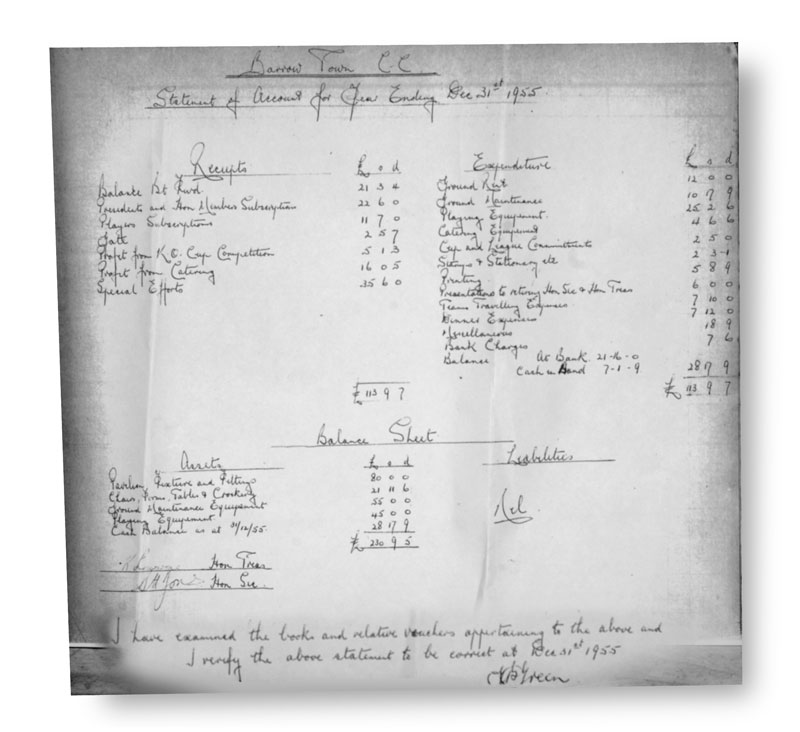 Barrow Town C.C.
Statement of Account for Year Ending Dec 31st 1955
Receipts £ s d
Balance Bt Fwd. 21 3 4
Presidents and Hon Members Subscription 22 6 0
Players Subscriptions 11 7 0
2 5 7
Profit from K.O. Cup Competition 5 1 3
Profit from Catering 16 0 5
Special Efforts 35 6 0
£ 113 9 7
Expenditure £ s d
Ground Rent 12 0 0
Ground Maintenance 10 7 9
Playing Equipment 25 2 6
Catering Equipment 4 6 6
Cup and League Commitments 2 5 0
& Stationery etc 2 3 1
Printing 5 8 9
Presentations to retiring Hon Sec & Hon Treas 6 0 0
Teams Travelling Expenses 7 10 0
Dinner Expenses 7 12 0
Miscellaneous 18 9
Bank Charges 7 6
Balance At Bank 21-16-0
Cash in Hand 7-1-9 28 17 9
£ 113 9 7
Balance Sheet
Assets £ s d
Pavilion, Fixture and Fittings 80 0 0
Chairs, Forms, Tables & Crockery 21 11 6
Ground Maintenance Equipment 55 0 0
Playing Equipment 45 0 0
Cash Balance as at 31/12/55 28 17 9
£ 230 9 5
Liabilities
Nil
Hon Treas
Hon Sec.
I have examined the books and relative vouchers appertaining to the above and
I verify the above statement to be correct at Dec 31st 1955
Green